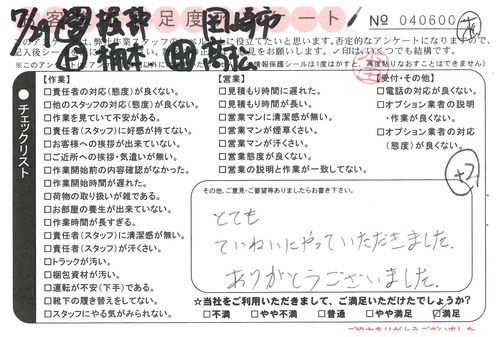 お客様満足度アンケート
No 040600
チェックリスト
【作業】
□責任者の対応(態度)が良くない。
□他のスタッフの対応(態度)が良くない。
□作業を見ていて不安がある。
□責任者(スタッフ)に好感が持てない。
□お客様への挨拶が出来ていない。
□ご近所への挨拶・気遣いが無い。
□作業開始前の内容確認がなかった。
□作業開始時間が遅れた。
□荷物の取り扱いが雑である。
□お部屋の養生が出来ていない。
□作業時間が長すぎる。
□責任者(スタッフ)に清潔感が無い。
□責任者(スタッフ)が汗くさい。
□トラックが汚い。
□梱包資材が汚い。
□運転が不安(下手)である。
□靴下の履き替えをしてない。
□スタッフにやる気がみられない。
【営業】
□見積もり時間に遅れた。
□見積もり時間が長い。
□営業マンに清潔感が無い。
□営業マンが煙草くさい。
□営業マンが汗くさい。
□営業態度が良くない。
□営業の説明と作業が一致してない。
【受付・その他】
□電話の対応が良くない。
□オプション業者の説明
・作業が良くない。
□オプション業者の対応
(態度)が良くない。
+2
その他、ご意見・ご要望等ありましたらお書き下さい。
とても
ていねいにやっていただきました。
ありがとうございました。
☆当社をご利用いただきまして、ご満足いただけたでしょうか?
□不満 □やや不満 □普通 □やや満足 ☑満足
ご協力ありがとうございました